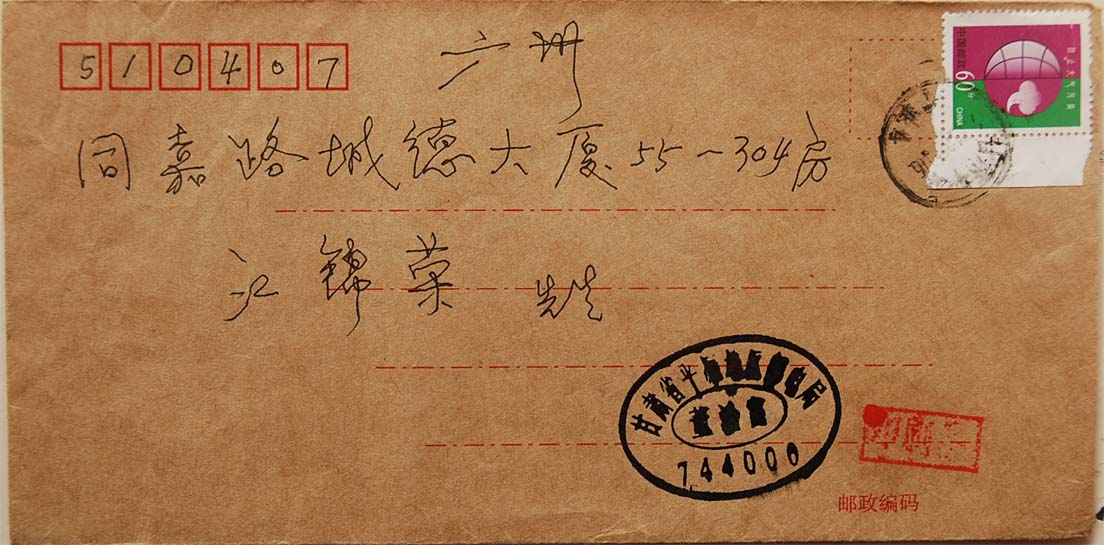 510407 广州
中国邮政 60分 CHINA
防止大气污染
同嘉路城德大厦55~304房
江锦荣 先生
甘肃省平
744000
邮政编码